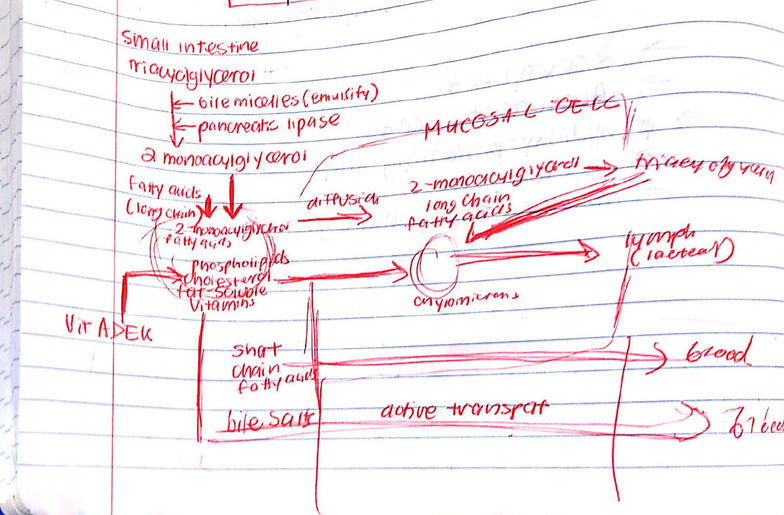 small intestine
triacylglycerol
bile micelles (emulsify)
pancreatic lipase
2 monoacylglycerol
MUCOSAL CELL
fatty acids
(long chain)
2-monoacylglycerol
fatty acids
phospholipids
cholesterol
fat-soluble
vitamins
Vit ADEK
diffusion
2-monoacylglycerol
long chain
fatty acids
triacylglycerol
chylomicrons
lymph
(lacteal)
short
chain
fatty acids
blood
bile salts
active transport